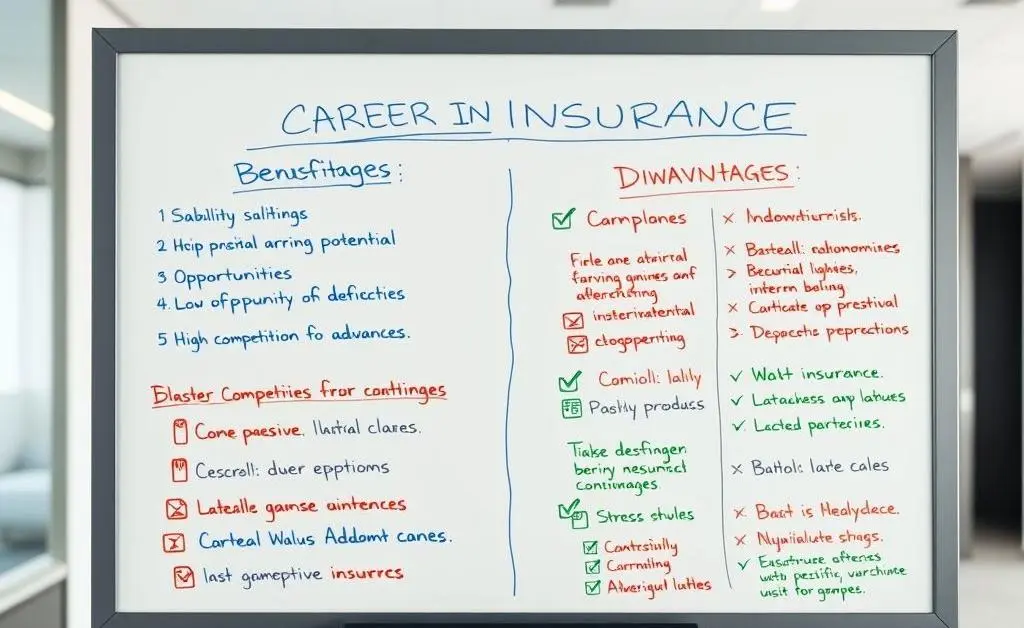 CAREER IN INSURANCE
Benusfitages:
1 Sabllity salltings
2 Hcip pnsinal arring potential
3 Opportunities
4. Low ofppunity of deficcties
5 High competition fo advances.
Blaster Competiies fror contlinges
Cone paesive. Ilustial clares.
Cescroll: duer epptioms
Latealle gamse aintences
Carteal Walus Addomt canes.
last gameptive insurres
DIWAVNTAGES:
Camplanes
Firle ane atairral
farving gnines anf
alterenching
insterivatental
ctogpenting
Comioll: lalily
Pashly produss
Tiake desfinger
beriry nesunrict
Contimages
Stress stules
Contesially
Carnnling
Alverigut luttes
Indowtiurrists.
Basteall: eahonomines
Becurial lighies,
interm boling
Carticate op prestival
Depacchs peprections
Walt insurance.
Latachess anp latues
Lacted parteries.
Batiol: larte cales
Bast is Healydece.
Nyaialute shags.
Eassatruse afteries
with peszific, varchine
visit for gampes.